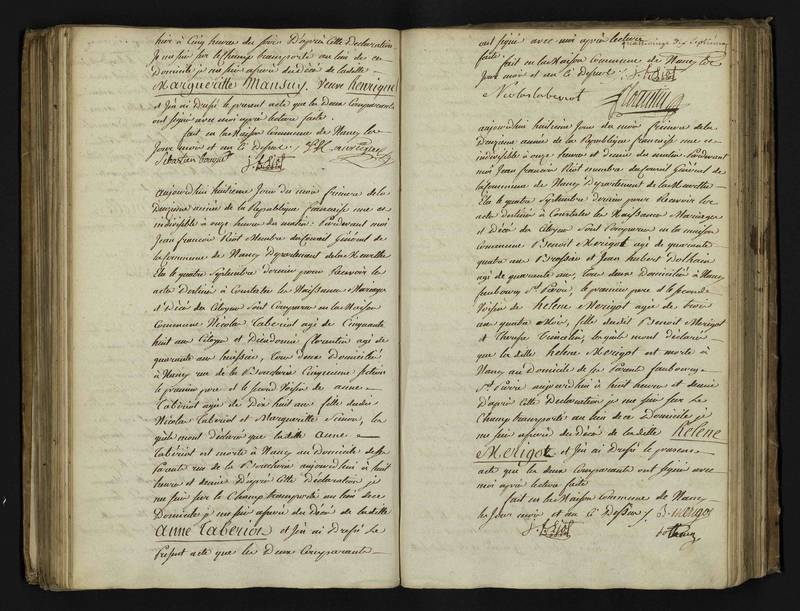 hier à Cinq heures du soir. D'après Cette Déclaration
je me suis sur le Champ transporté au lieu de ce
Domicile je me suis assuré du décès de ladite
Margueritte Mansuy, Veuve Henrigue
et j'en ai Dressé le present acte que les Deux Comparants
ont signés avec moi après lecture faite.
fait en la Maison Commune de Nancy les
Jour mois et an ci Dessus.
Sebastien
aujourdhui huitieme Jour du mois frimere de la
Deuzieme année de la Republique francaise une et
indivisible à onze heures du matin. Pardevant moi
Jean francois Riot Membre du Conseil Général de
la Commune de Nancy Departement de la Meurthe
Elu le quatre Septembre dernier pour Recevoir les
actes Destinés à Constater les Naissances Mariages
et Décès des Citoyens Sont Comparus en la Maison
Commune Nicolas Laberiot agé de Cinquante
huit ans Citoyen et Dieudonné florentin agé de
quarante ans huissier, tous deux Domiciliés
à Nancy rue de la Boucherie Cinquieme Section
le premier pere et le second Voisin de anne
Laberiot agée de Dix huit ans fille dudit
Nicolas Laberiot et Margueritte Simon, les
quels mont déclaré que ladite anne
Laberiot est morte à Nancy au Domicile de ses
Parents rue de la Boucherie aujourdhui à huit
heures et demie D'après Cette Déclaration je
me suis sur le Champ transporté au lieu de ce
Domicile je me suis assuré du Décès de ladite
Anne Laberiot et j'en ai Dressé le
Present acte que les Deux Comparants
ont signés avec moi après lecture
faite.
fait en la Maison Commune de Nancy les
Jour mois et an ci Dessus.
Nicolas laberiot
florentin
aujourdhui huitieme Jour du mois frimere de la
Deuzieme année de la Republique francaise une et
indivisible à onze heures et demie du matin Pardevant
moi Jean francois Riot membre du Conseil Général de
la Commune de Nancy Departement de la Meurthe
Elu le quatre Septembre dernier pour Recevoir les
actes destinés à Constater les Naissances Mariages
et Décès des Citoyens Sont Comparus en la maison
Commune Benoit Merigot agé de quarante
quatre ans Brossier et Jean hubert
agé de quarante ans, tous deux Domiciliés à Nancy
faubourg St. Pierre, le premier pere et le second
Voisin de helene Merigot agée de trois
ans quatre Mois, fille dudit Benoit Merigot
et Therese lesquels mont déclaré
que ladite helene Merigot est morte à
Nancy au Domicile de ses Parents faubourg
St. Pierre aujourdhui à huit heures et demie
D'après Cette Déclaration je me suis sur le
Champ transporté au lieu de ce Domicile je
me suis assuré du Décès de ladite helene
Merigot et j'en ai Dressé le present
acte que les deux Comparants ont signés avec
moi après lecture faite
fait en la Maison Commune de Nancy
les Jour mois et an ci Dessus. B merigot